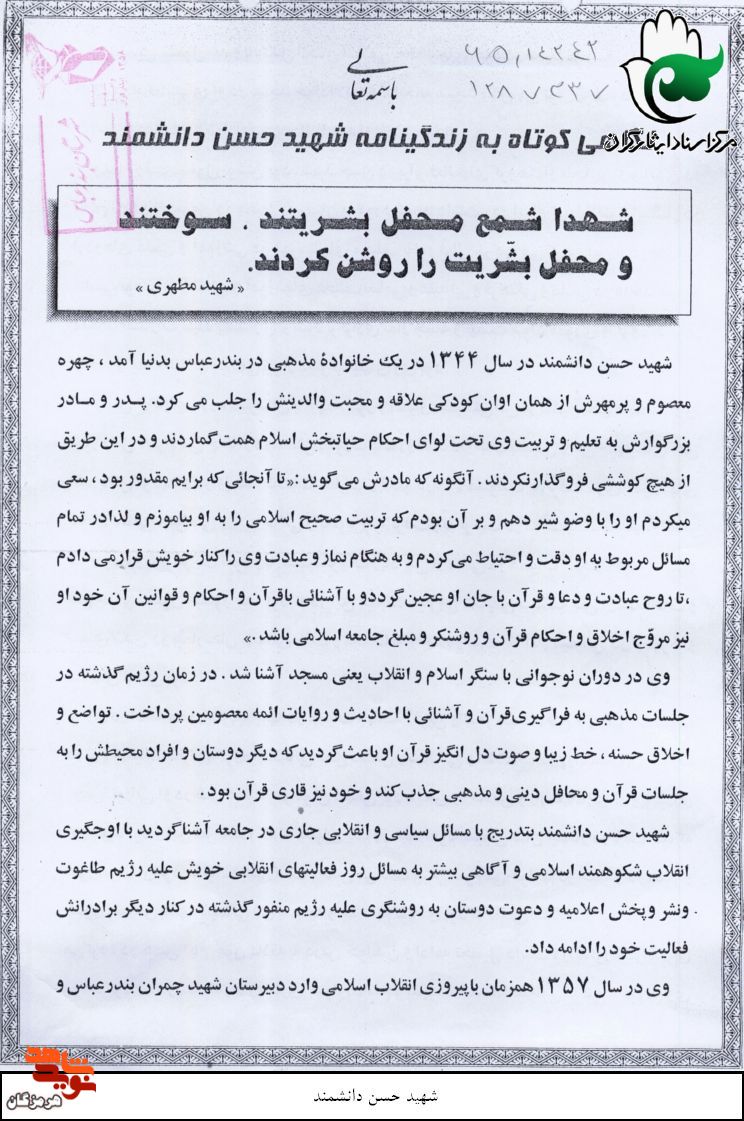 باسمه تعالی
۶۵,۱۴۲۴۲
۱۲۸۷۳۳۷
مرکز اسناد ایثارگران
هی کوتاه به زندگینامه شهید حسن دانشمند
شهرستان بندرعباس
شهدا شمع محفل بشریتند . سوختند
و محفل بشّریت را روشن کردند.
« شهید مطهری »
شهید حسن دانشمند در سال ۱۳۴۴ در یک خانوادهٔ مذهبی در بندرعباس بدنیا آمد ، چهره
معصوم و پرمهرش از همان اوان کودکی علاقه و محبت والدینش را جلب می کرد. پدر و مادر
بزرگوارش به تعلیم و تربیت وی تحت لوای احکام حیاتبخش اسلام همت گماردند و در این طریق
از هیچ کوششی فروگذارنکردند . آنگونه که مادرش می گوید :«تا آنجائی که برایم مقدور بود ، سعی
میکردم او را با وضو شیر دهم و بر آن بودم که تربیت صحیح اسلامی را به او بیاموزم و لذادر تمام
مسائل مربوط به او دقت و احتیاط می کردم و به هنگام نماز و عبادت وی را کنار خویش قرارمی دادم
،تا روح عبادت و دعا و قرآن با جان او عجین گرددو با آشنائی باقرآن و احکام و قوانین آن خود او
نیز مروّج اخلاق و احکام قرآن و روشنکر و مبلغ جامعه اسلامی باشد .»
وی در دوران نوجوانی با سنگر اسلام و انقلاب یعنی مسجد آشنا شد . در زمان رژیم گذشته در
جلسات مذهبی به فراگیری قرآن و آشنائی با احادیث و روایات ائمه معصومین پرداخت . تواضع و
اخلاق حسنه ، خط زیبا و صوت دل انگیز قرآن او باعث گردید که دیگر دوستان و افراد محیطش را به
جلسات قرآن و محافل دینی و مذهبی جذب کند و خود نیز قاری قرآن بود .
شهید حسن دانشمند بتدریج با مسائل سیاسی و انقلابی جاری در جامعه آشناگردید با اوجگیری
انقلاب شکوهمند اسلامی و آگاهی بیشتر به مسائل روز فعالیتهای انقلابی خویش علیه رژیم طاغوت
. ونشر وپخش اعلامیه و دعوت دوستان به روشنگری علیه رژیم منفور گذشته در کنار دیگر برادرانش
فعالیت خود را ادامه داد.
وی در سال ۱۳۵۷ همزمان با پیروزی انقلاب اسلامی وارد دبیرستان شهید چمران بندرعباس و
نوید شاهد
هرمزگان
شهید حسن دانشمند